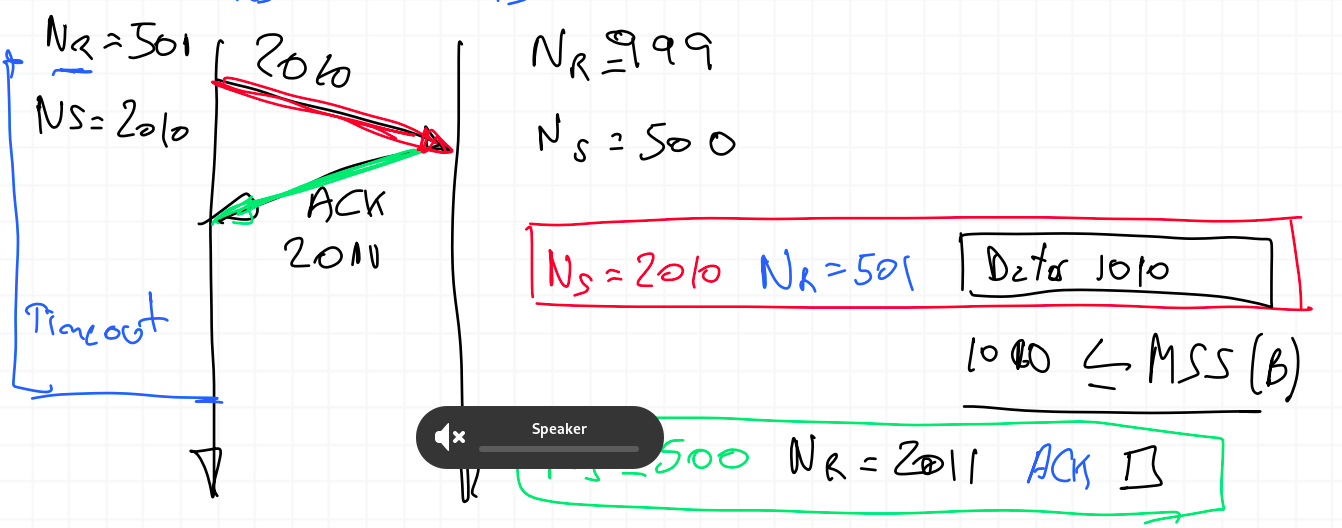 NR = 501
2010
NS = 2010
ACK
2011
Timeout
NR = 999
NS = 500
NS = 2010 NR = 501 Dator 1010
≤ MSS (B)
Speaker
= 500 NR = 2011 ACK